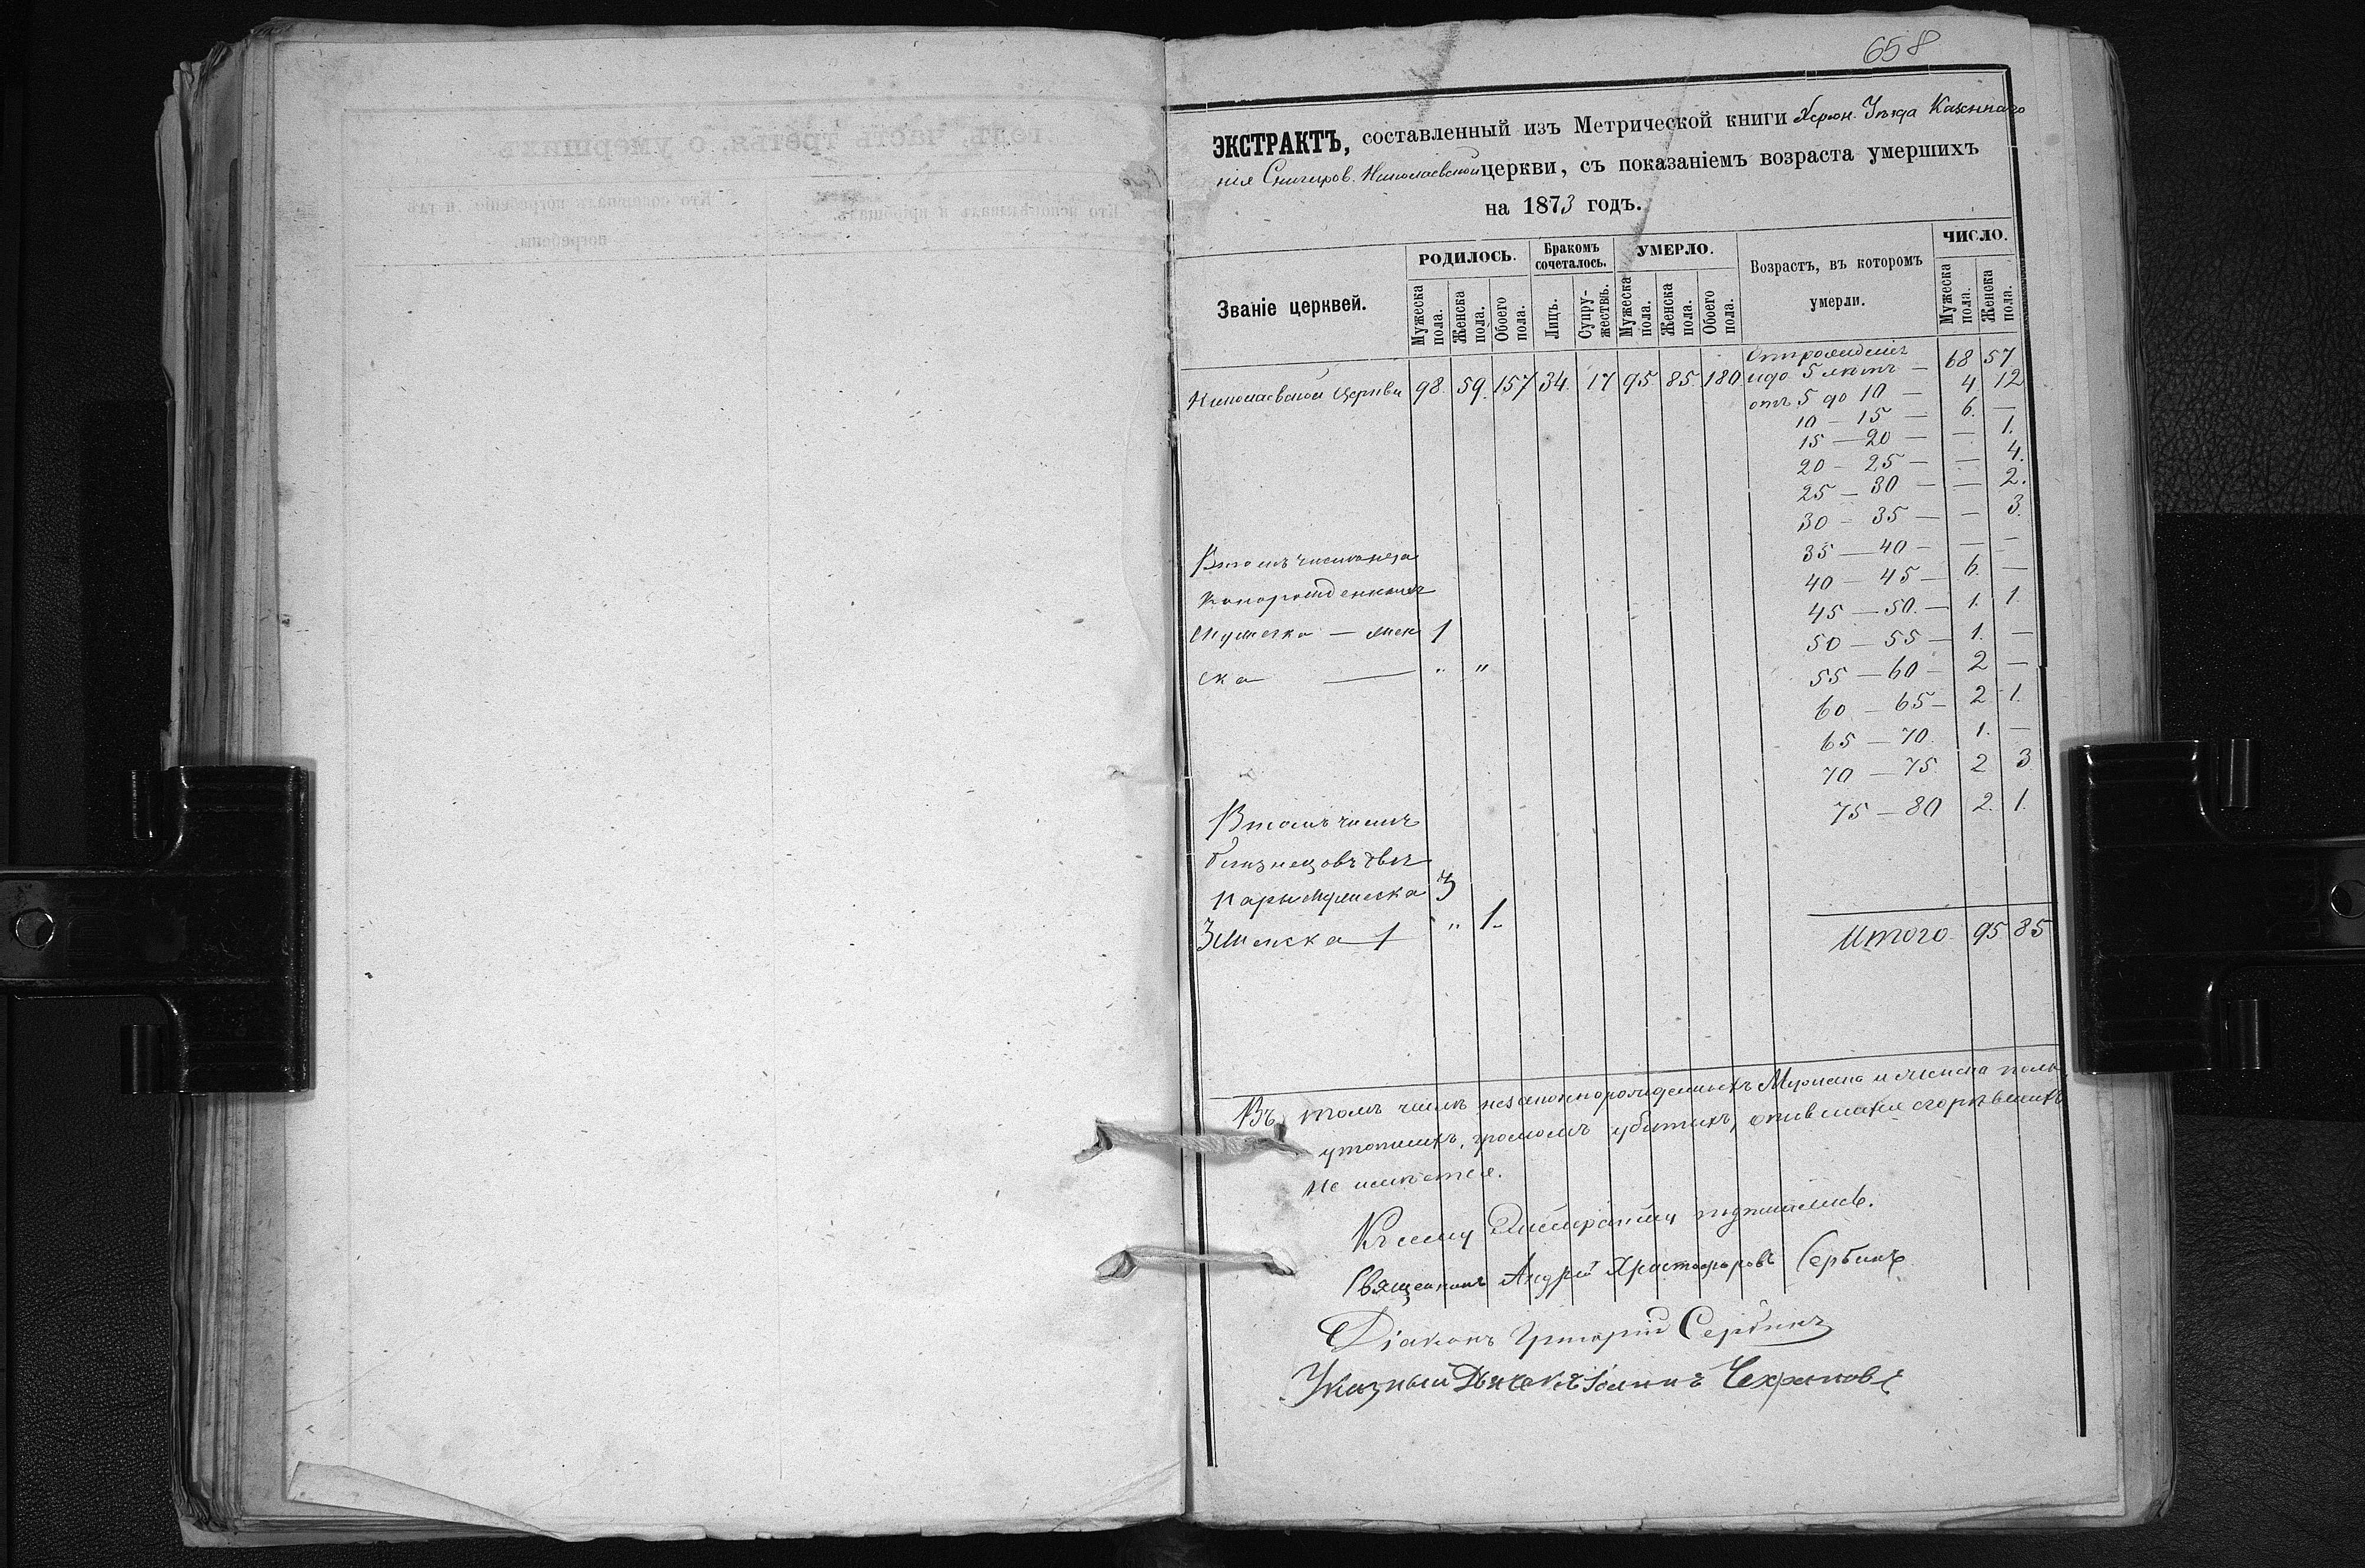 658
ЭКСТРАКТЪ, составленный изъ Метрической книги Херсон. Уѣзда Казеннаго
нія Снигиров. Николаевской церкви, съ показаніемъ возраста умершихъ
на 1873 годъ.
Званіе церквей. РОДИЛОСЬ. Бракомъ сочеталось. УМЕРЛО. Возрастъ, въ которомъ умерли. ЧИСЛО.
Мужеска пола. Женска пола. Обоего пола. Лицъ. Супружествъ. Мужеска пола. Женска пола. Обоего пола. Мужеска пола. Женска пола.
Николаевской Церкви 98. 59. 157 34. 17 95. 85. 180.
отрожденія
идо 5 лѣтъ — 68 57
отъ 5 до 10 — 4. 12
10 — 15 — 6. —
15 — 20 — — 1.
20 — 25 — — 4.
25 — 30 — — 2.
30 — 35 — — 3.
35 — 40 — — —
40 — 45 — 6. —
45 — 50. — 1. 1.
50 — 55 — 1. —
55 — 60 — 2 —
60 — 65 — 2 1.
65 — 70. 1. —
70 — 75. 2 3
75 — 80 2. 1.
Итого 95 85
Втомъ числѣ неза
конорожденныхъ
Мужеска — жен 1
ска — " "
Втомъ числѣ
близнецовъ двѣ
пары Мужеска 3
3 Женска 1 " 1.
Въ томъ числѣ незаконнорожденныхъ Мужеска и женска пола,
утопшихъ, громомъ убитыхъ, опившихся сгорѣвшихъ
Не имѣется.
Къ сему Экстракту подписались.
Священникъ Андрей Христофоровъ Сербинъ
Діаконъ Григорій Сербинъ
Указный Дьячекъ Іоаннъ
годъ, часть третья. о умершихъ
Кто исповѣдывалъ и пріобщалъ.
Кто совершалъ погребеніе и гдѣ
погребены.